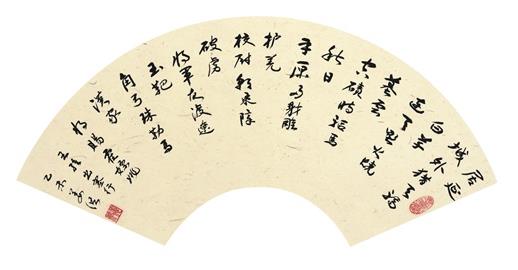 居延
城外猎天骄
白草
连天野火烧
暮云
空碛时驱马
秋日
平原好射雕
护羌
校尉朝乘障
破虏
将军夜渡辽
玉靶
角弓珠勒马
汉家
将赐霍嫖姚
王维出塞作
乙未